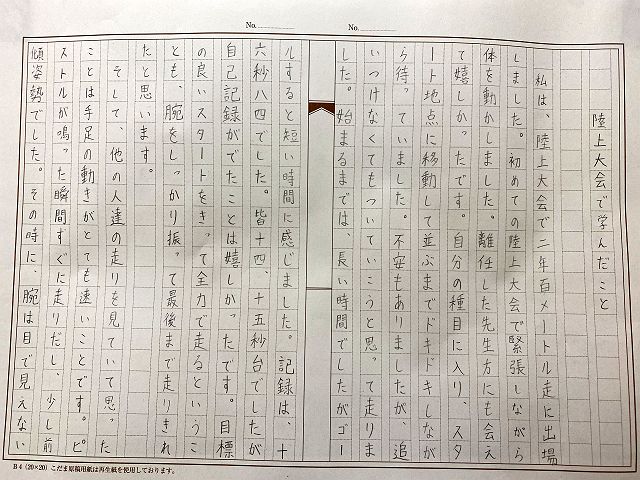 No.
No.
陸上大会で学んだこと
私は、陸上大会で二年百メートル走に出場
しました。初めての陸上大会で緊張しながら
体を動かしました。離任した先生方にも会え
て嬉しかったです。自分の種目に入り、スタ
ート地点に移動して並ぶまでドキドキしなが
ら待っていました。不安もありましたが、追
いつけなくてもついていこうと思って走りま
した。始まるまでは、長い時間でしたがゴー
ルすると短い時間に感じました。記録は、十
六秒八四でした。皆十四、十五秒台でしたが
自己記録がでたことは嬉しかったです。目標
の良いスタートをきって全力で走るというこ
とも、腕をしっかり振って最後まで走りきれ
たと思います。
そして、他の人達の走りを見ていて思った
ことは手足の動きがとても速いことです。ピ
ストルが鳴った瞬間すぐに走りだし、少し前
傾姿勢でした。その時に、腕は目で見えない
B4(20×20)こだま原稿用紙は再生紙を使用しております。